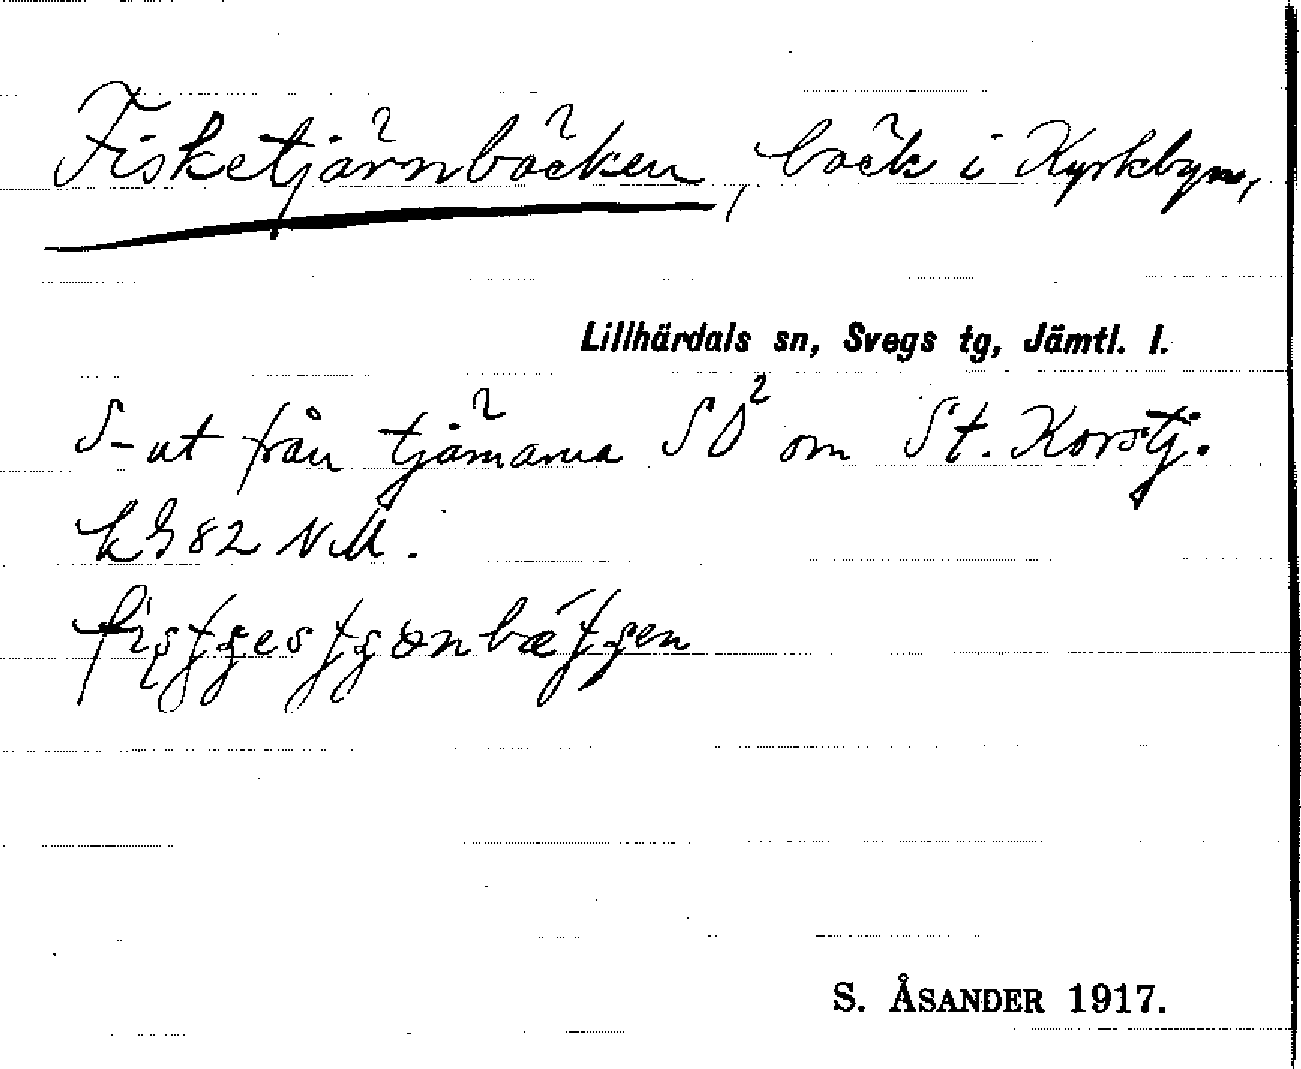 Fisketjärnbäcken, bäck i Kyrkbyn,
Lillhärdals sn, Svegs tg, Jämtl. l.
S-ut från tjärnarna SO² om St. Korstj.
82 NM.
S. ÅSANDER 1917.